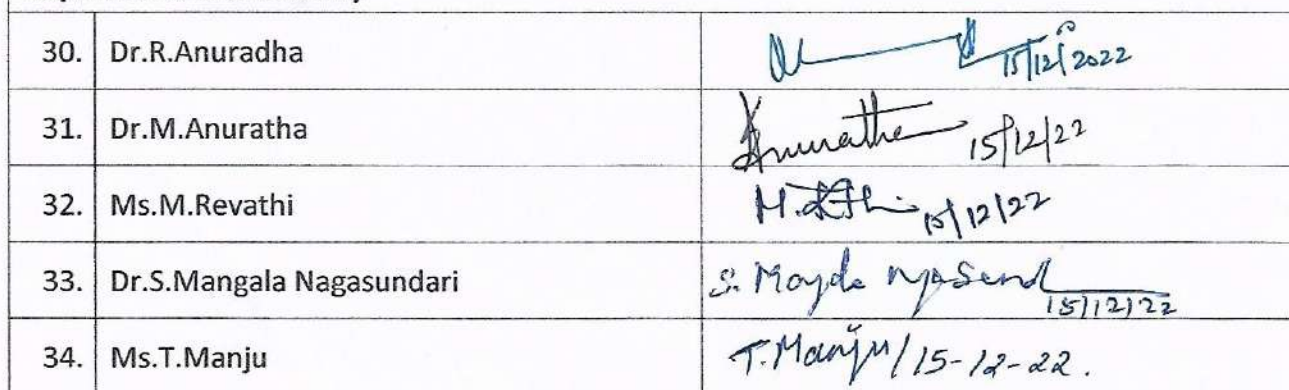 30. Dr.R.Anuradha 15/12/2022
31. Dr.M.Anuratha Anuratha 15/12/22
32. Ms.M.Revathi 15/12/22
33. Dr.S.Mangala Nagasundari S. 15/12/22
34. Ms.T.Manju T.Manju/15-12-22.